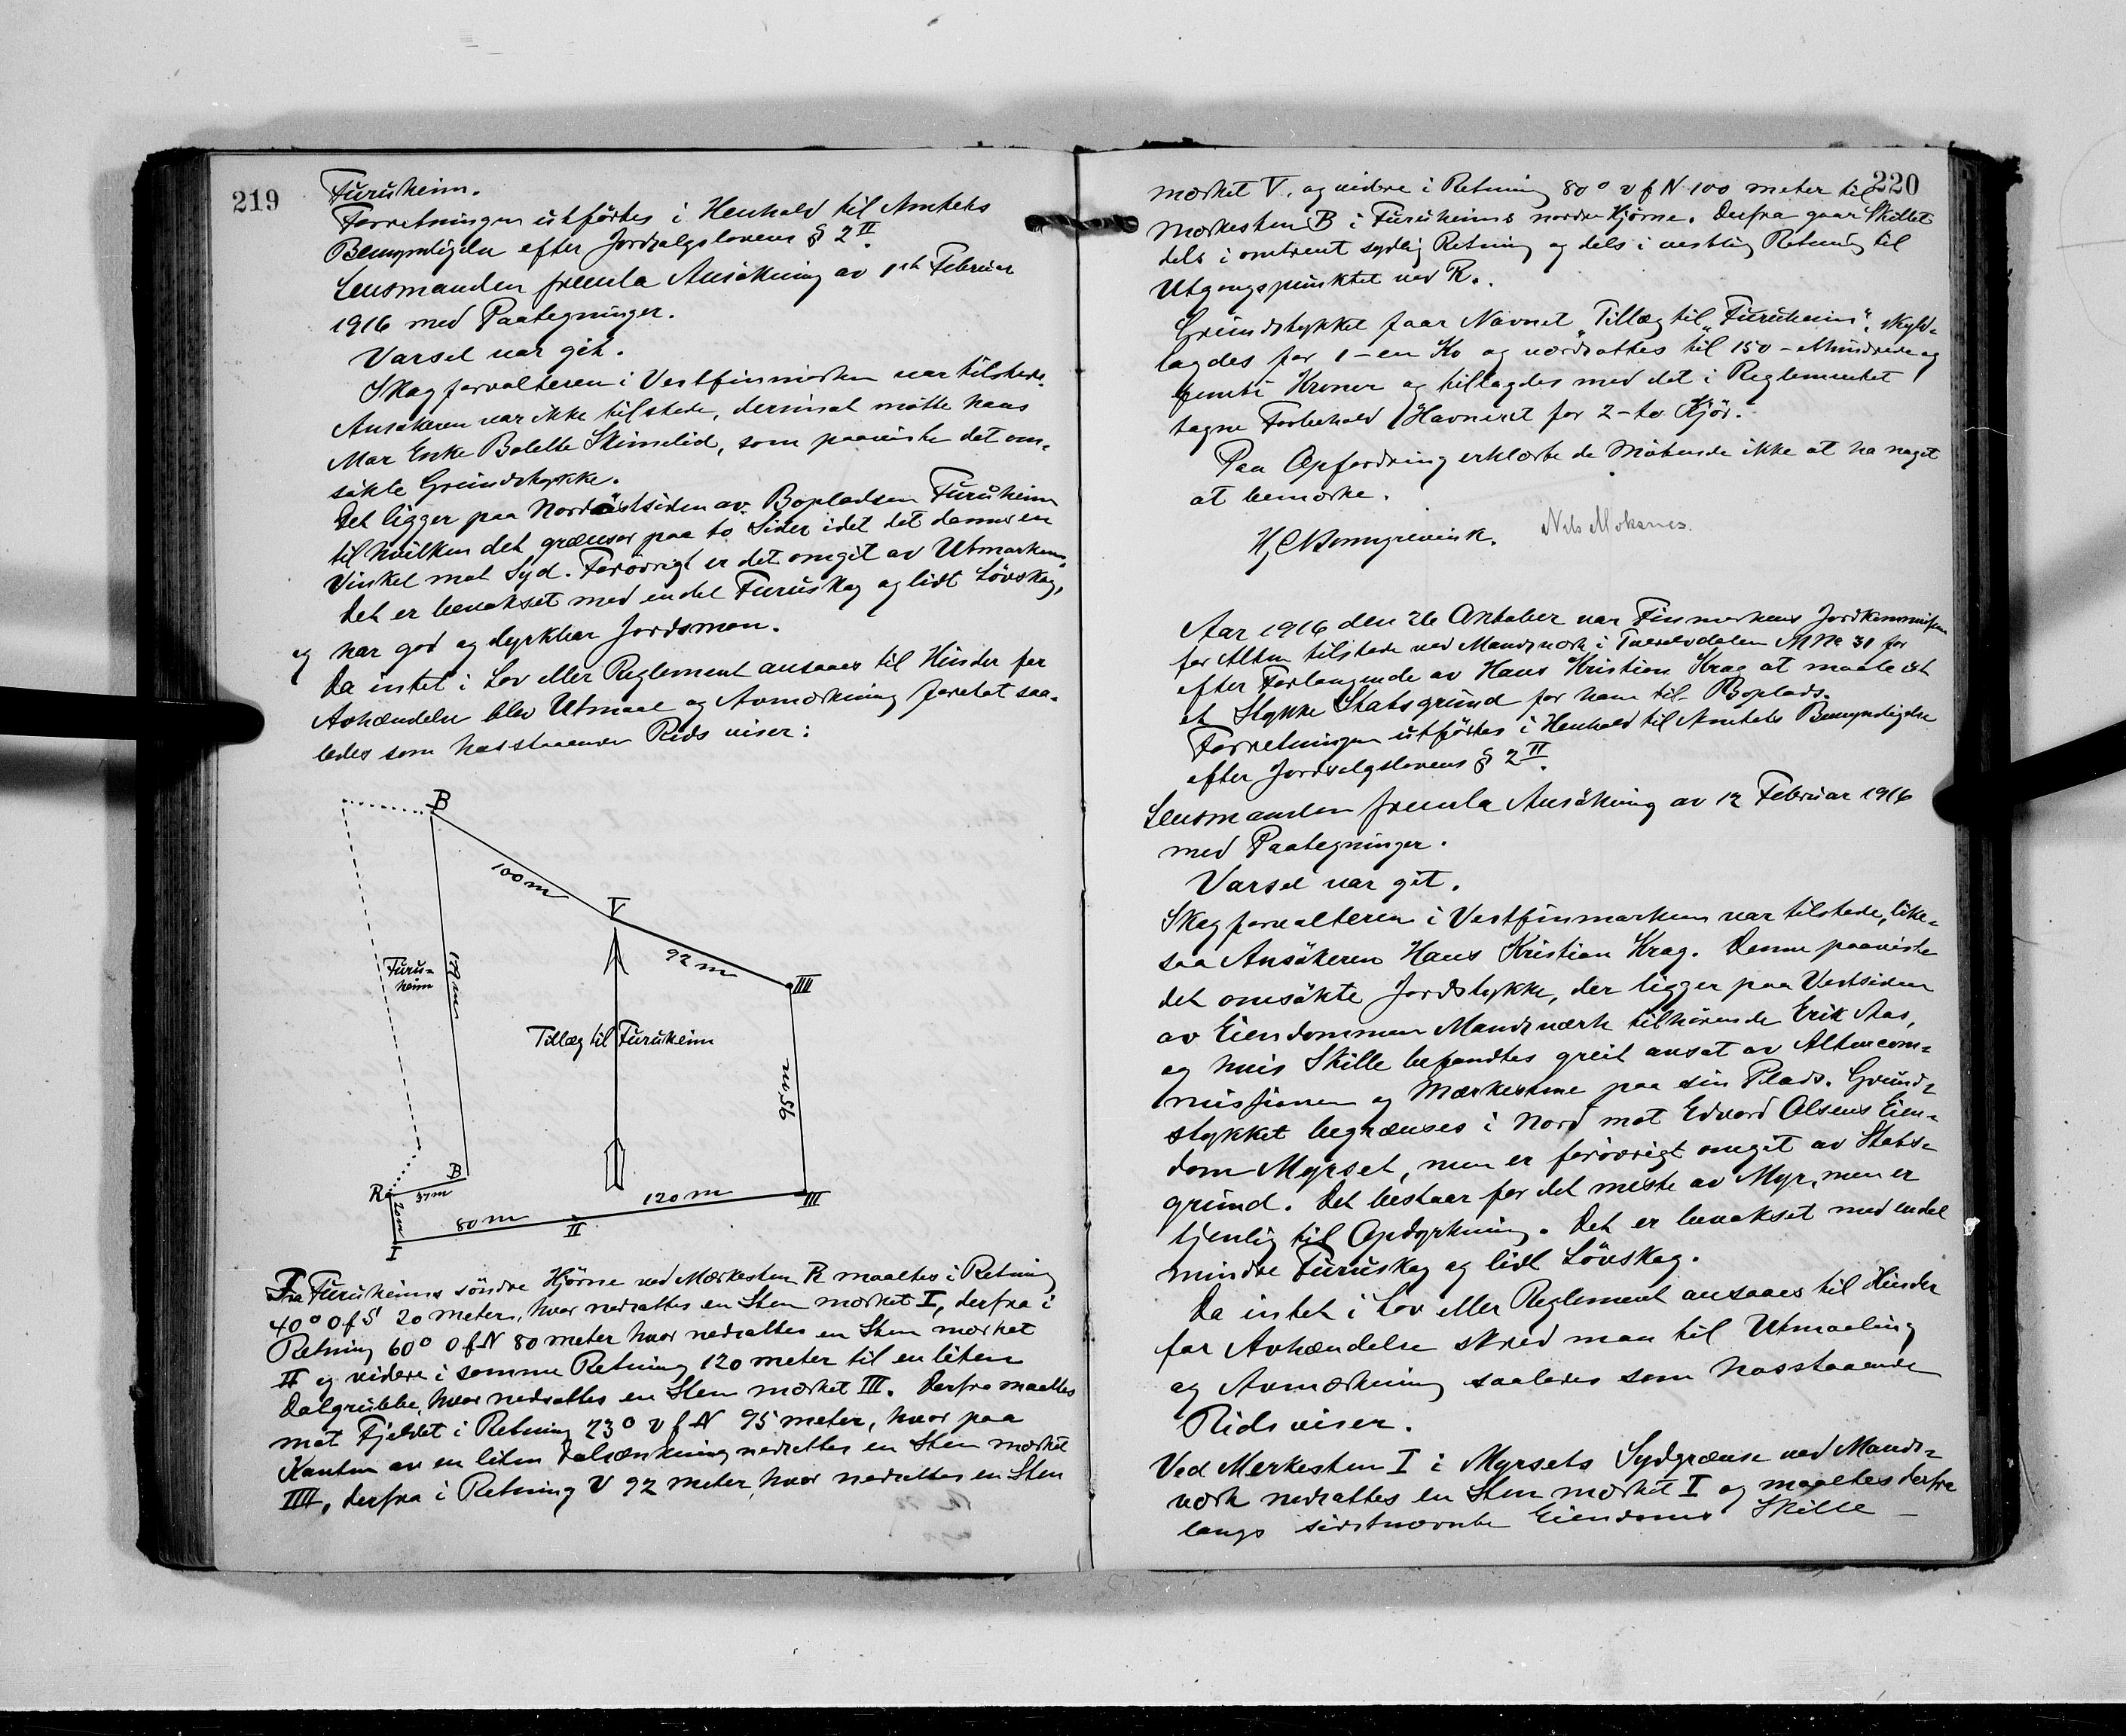 219
Furuheim.
Forretningen utförtes i Henhold til Amtets
Bemyndigelse efter Jordsalgslovens § 2 II.
Lensmanden fremla Ansökning av 1ste Februar
1916 med Paategninger.
Varsel var git.
Skogforvalteren i Vestfinmarken var tilstede.
Ansökeren var ikke tilstede, derimot mötte hans
Mor Enke Bolette Skimelid, som paaviste det om-
sökte Grundstykke.
Det ligger paa Nordöstsiden av Bopladsen Furuheim
til hvilken det grænser paa to Sider idet det danner en
Vinkel mot Syd. Forövrigt er det omgit av Utmarken.
Det er bevokset med endel Furuskog og lidt Lövskog,
og har god og dyrkbar Jordsmon.
Da intet i Lov eller Reglement ansaaes til Hinder for
Avhændelse blev Utmaal og Avmerkning foretat saa-
ledes som hosstaaende Rids viser:
B
100 m
V
92 m
IIII
Furu-
heim
179 m
Tillæg til Furuheim
95 m
B
R
37 m
20 m
I
80 m
II
120 m
III
Fra Furuheims söndre Hjörne ved Merkesten R maaltes i Retning
40° O f S 20 meter, hvor nedsattes en Sten merket I, derfra i
Retning 60° O f N 80 meter hvor nedsattes en Sten merket
II og videre i samme Retning 120 meter til en liten
Dalgrubbe, hvor nedsattes en Sten merket III. Derfra maaltes
mot Fjeldet i Retning 23° V f N 95 meter, hvor paa
Kanten av en liten Dalsænkning nedsattes en Sten merket
IIII, derfra i Retning V 92 meter, hvor nedsattes en Sten
220
merket V, og videre i Retning 80° V f N 100 meter til
Merkesten B i Furuheims nordre Hjörne. Derfra gaar Skillet
dels i omtrent sydlig Retning og dels i vestlig Retning til
Utgangspunktet ved R.
Grundstykket faar Navnet „Tillæg til „Furuheim“, skyld-
lagdes for 1 - en Ko og værdsattes til 150 - ethundrede og
femti Kroner og tillagdes med det i Reglementet
tagne Forbehold Havneret for 2 - to Kjör.
Paa Opfordring erklærte de Mötende ikke at ha noget
at bemerke.
Nils Moksnes.
Aar 1916 den 26 Oktober var Finmarkens Jordkommission
for Alten tilstede ved Mandsverk i Tverelvdalen M No 31 for
efter Forlangende av Hans Kristian Krog at maale ut
et Stykke Statsgrund for ham til Boplads.
Forretningen utförtes i Henhold til Amtets Bemyndigelse
efter Jordsalgslovens § 2 II.
Lensmanden fremla Ansökning av 12 Februar 1916
med Paategninger.
Varsel var git.
Skogforvalteren i Vestfinmarken var tilstede, like-
saa Ansökeren Hans Kristian Krog. Denne paaviste
det omsökte Jordstykke, der ligger paa Vestsiden
av Eiendommen Mandsverk tilhörende Erik Aas,
og hvis Skille befandtes greit ansat av Altencom-
missionen og Merkestene paa sin Plads. Grund-
stykket begrænses i Nord mot Edvard Olsens Eien-
dom Myrset, men er forövrigt omgit av Stats-
grund. Det bestaar for det meste av Myr, men er
tjenlig til Opdyrkning. Det er bevokset med endel
mindre Furuskog og lidt Lövskog.
Da intet i Lov eller Reglement ansaaes til Hinder
for Avhændelse skred man til Utmaaling
og Avmerkning saaledes som hosstaaende
Rids viser.
Ved Merkesten I i Myrsets Sydgrænse ved Mands-
verk nedsattes en Sten merket I og maaltes derfra
langs sidstnævnte Eiendoms Skille